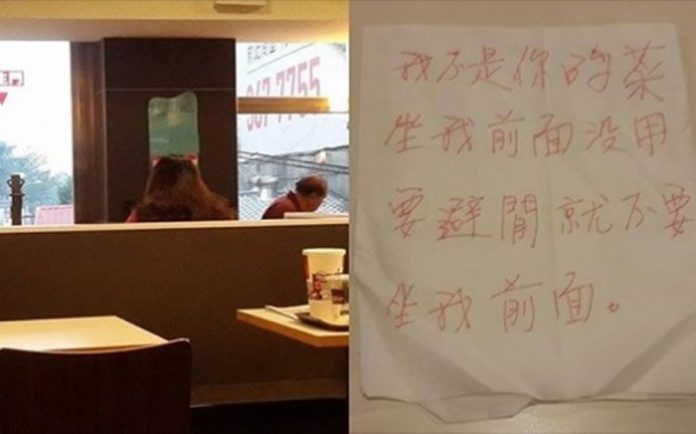 367 7755
我不是你的菜
坐我前面没用
要避開就不要
坐我前面。